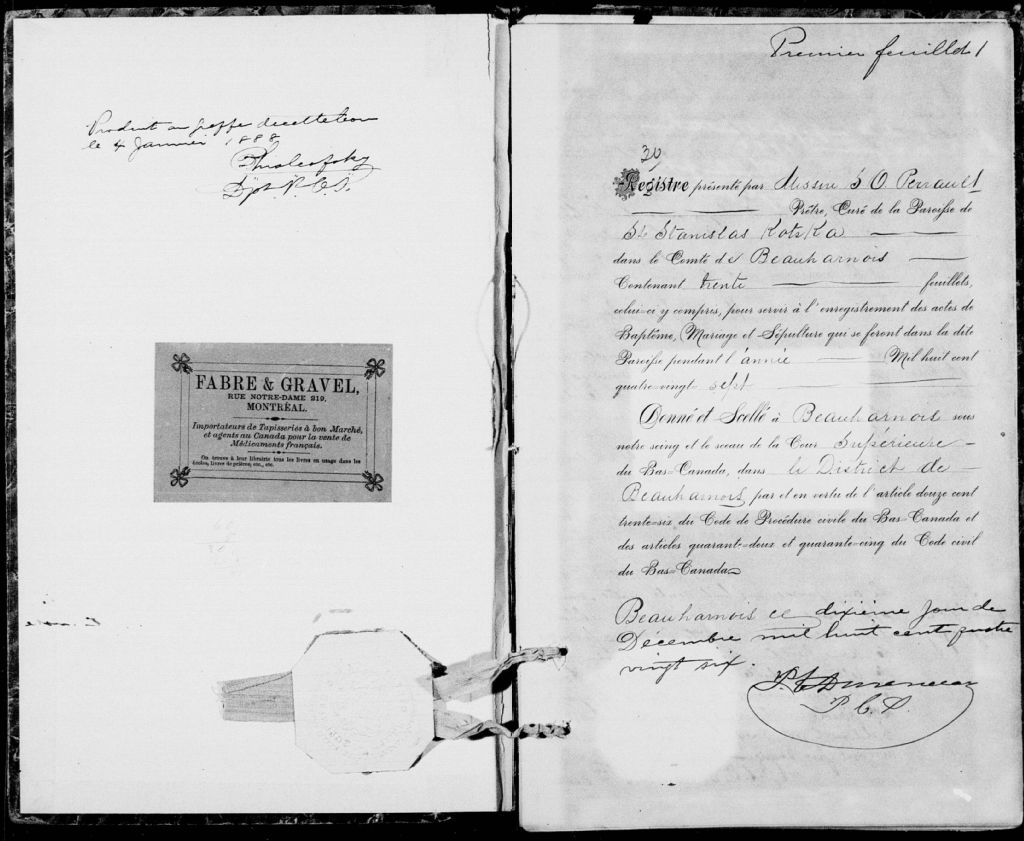 Produit au greffe
le 4 Janvier 1888
Dpt P. C. S.
FABRE & GRAVEL,
RUE NOTRE-DAME 219,
MONTRÉAL.
Importateurs de Tapisseries à bon Marché,
et agents au Canada pour la vente de
Médicaments français.
On trouve à leur librairie tous les livres en usage dans les
écoles, livres de prières, etc., etc.
Premier feuillet 1
30
Registre présenté par Messire S O Perrault
Prêtre, Curé de la Paroisse de
St Stanislas Kotska
dans le Comté de Beauharnois
Contenant trente feuillets,
celui-ci y compris, pour servir à l'enregistrement des actes de
Baptême, Mariage et Sépulture qui se feront dans la dite
Paroisse pendant l'année Mil huit cent
quatre-vingt sept
Donné et Scellé à Beauharnois sous
notre seing et le sceau de la Cour Supérieure
du Bas-Canada, dans le District de
Beauharnois, par et en vertu de l'article douze cent
trente-six du Code de Procédure civile du Bas-Canada et
des articles quarante-deux et quarante-cinq du Code civil
du Bas-Canada
Beauharnois ce dixième jour de
Décembre mil huit cent quatre
vingt six.
P. C. S.